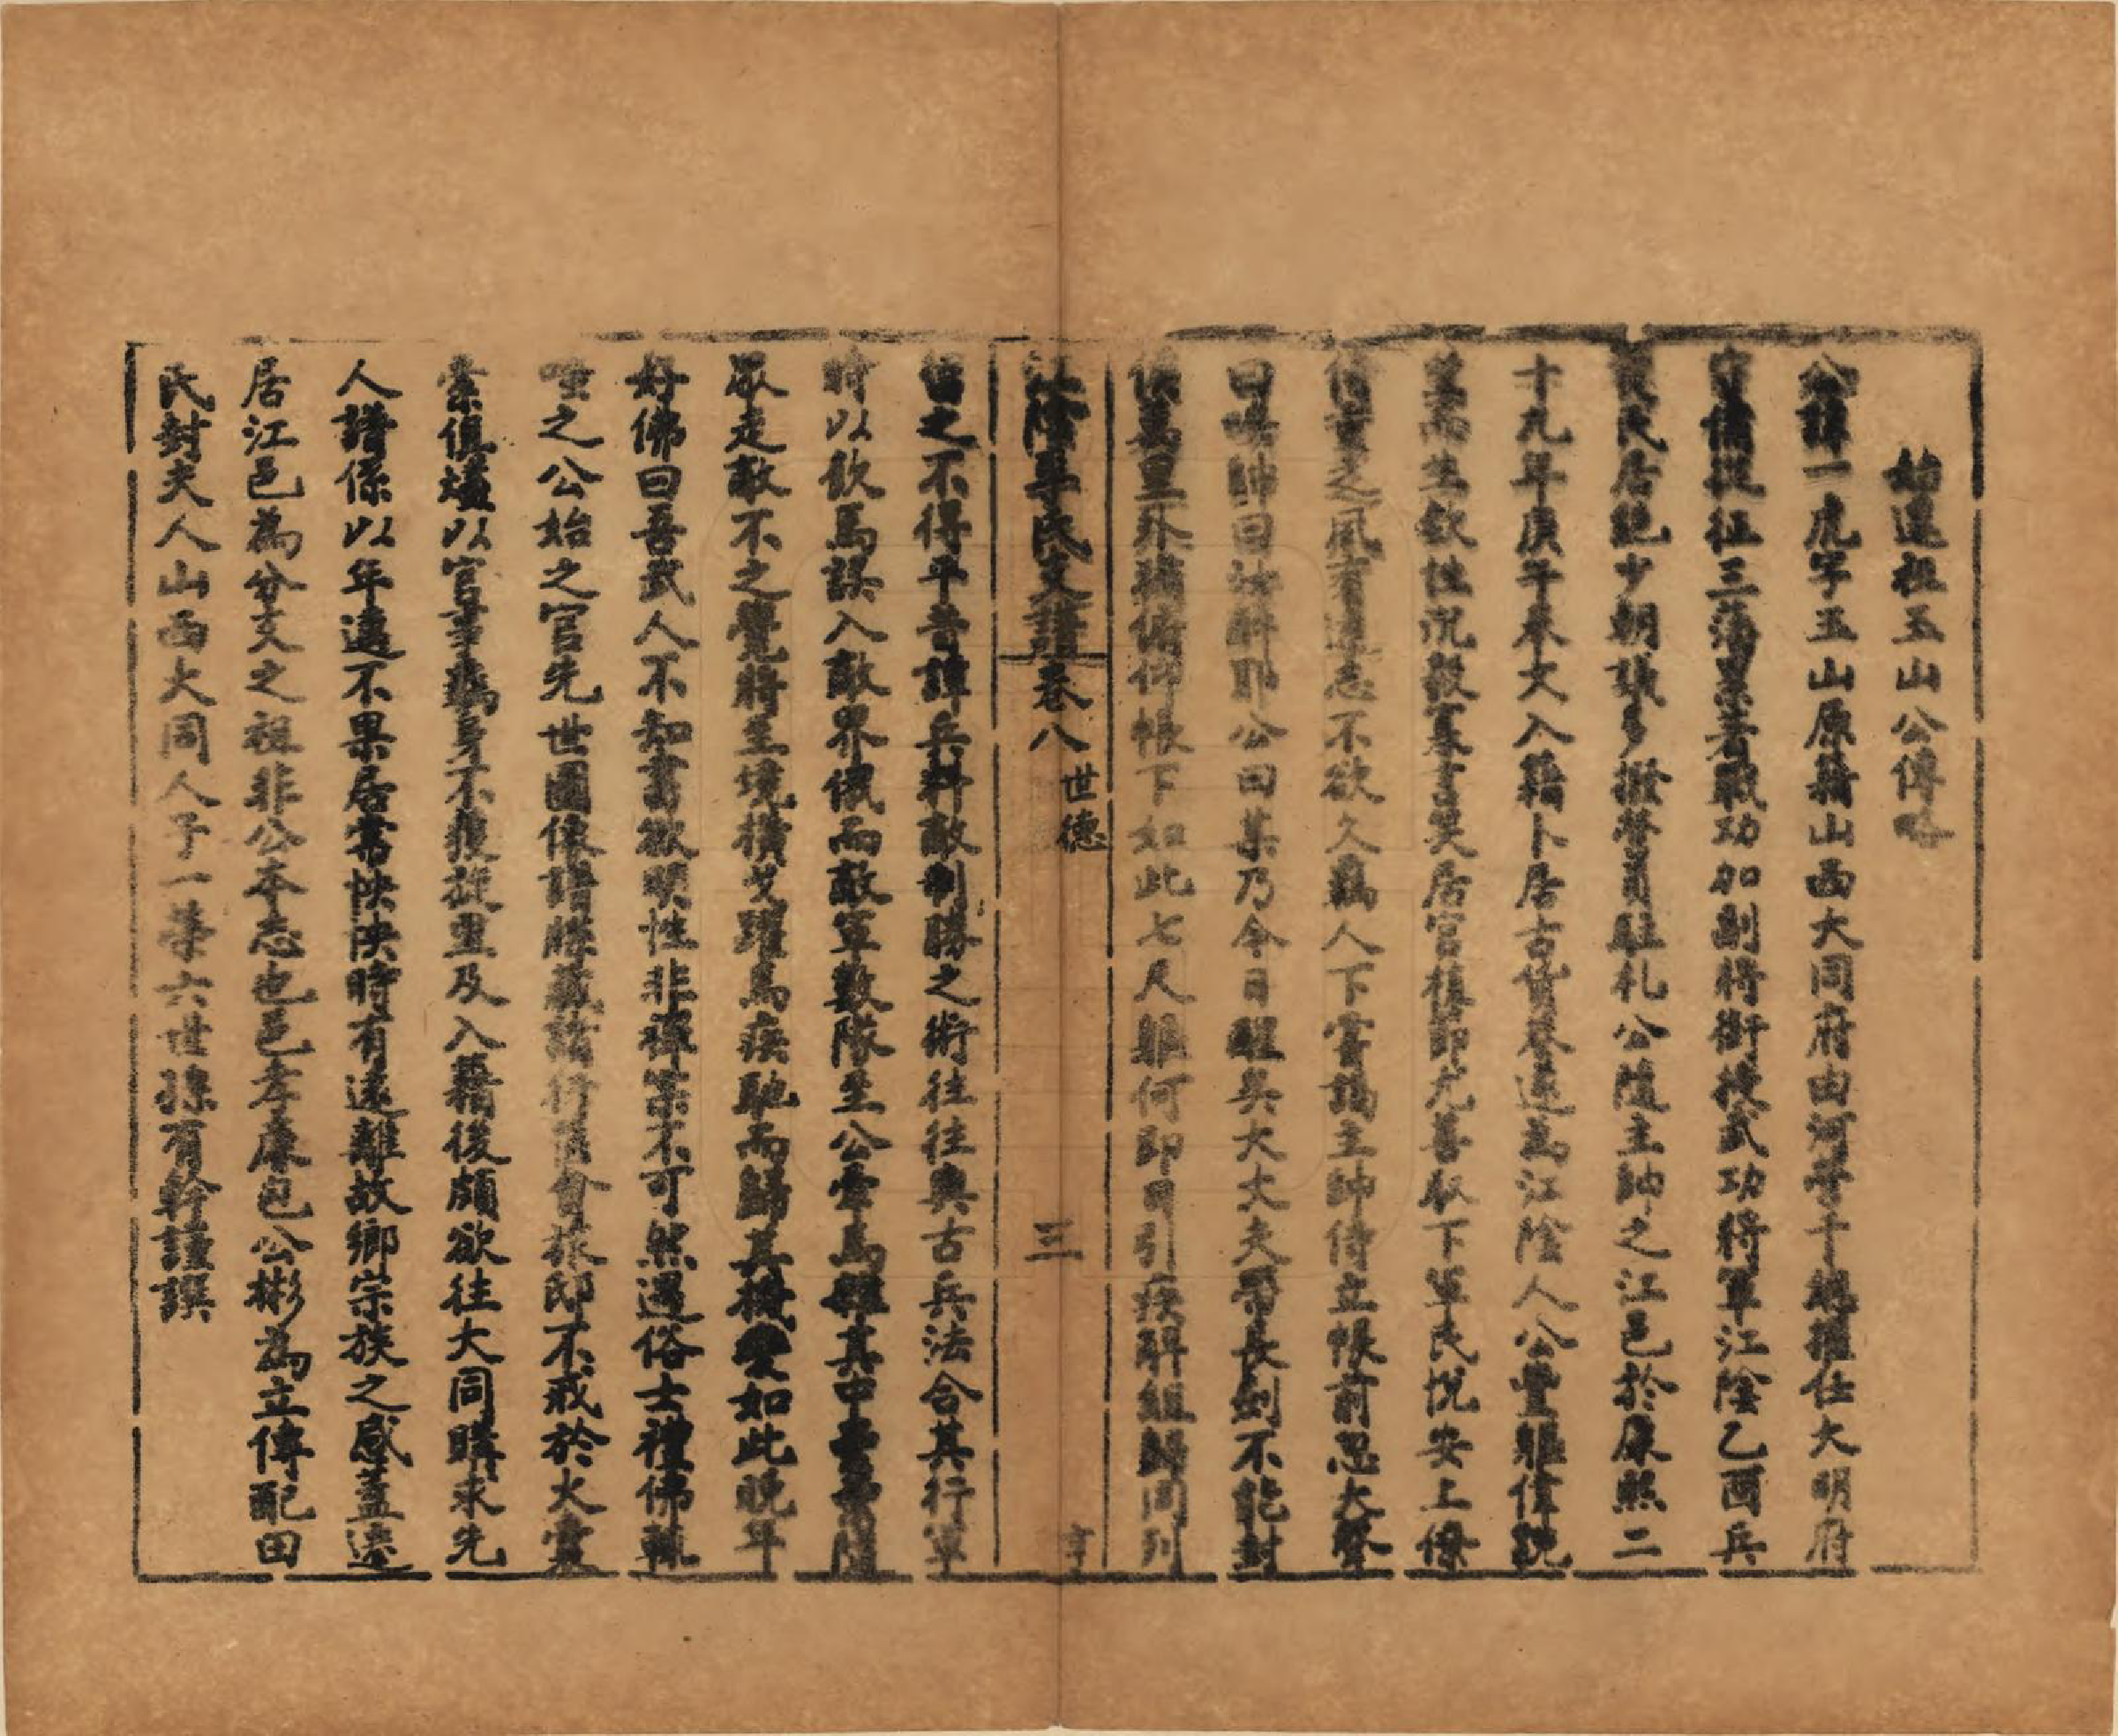 始遷祖玉山公傳略
公諱一虎字玉山原籍山西大同府由河營千總擢仕大明府
守備從征三藩累著戰功加副將銜授武功將軍江陰乙酉兵
後民居絕少朝議多撥營員駐札公隨主帥之江邑於康熙二
十九年庚午奉文入籍卜居古黃營遂為江陰人公豐軀偉貌
生飲性沉毅寡言笑居官操節尤善馭下軍民悅安上僚
之風有遠志不欲久羈人下嘗謁主帥侍立帳前忽大聲
曰帥曰汝醉耶公曰某乃今日醒矣大丈夫帶長劍不能封
侯萬里外猶俯仰帳下如此七尺軀何即日引疾解組歸同列
江陰李氏支譜卷八 世德 三
留之不得平昔譚兵料敵制勝之術往往與古兵法合其行軍
時以飲馬誤入敵界俄而敵軍數隊至公牽馬雜其中隨
敵走敵不之覺將至境橫戈躍馬疾馳而歸其機變如此晚年
好佛曰吾武人不知書欲明性非禪宗不可然遇俗士禮佛輒
之公始之官先世圖像譜牒藏諸行篋會旅邸不戒於火靈
索俱燼以官事羈身不獲旋里及入籍後頗欲往大同購求先
人譜係以年遠不果居常怏怏時有遠離故鄉宗族之感蓋遷
居江邑為分支之祖非公本志也邑孝廉包公彬為立傳配田
氏封夫人山西大同人子一榮六世孫有幹謹撰